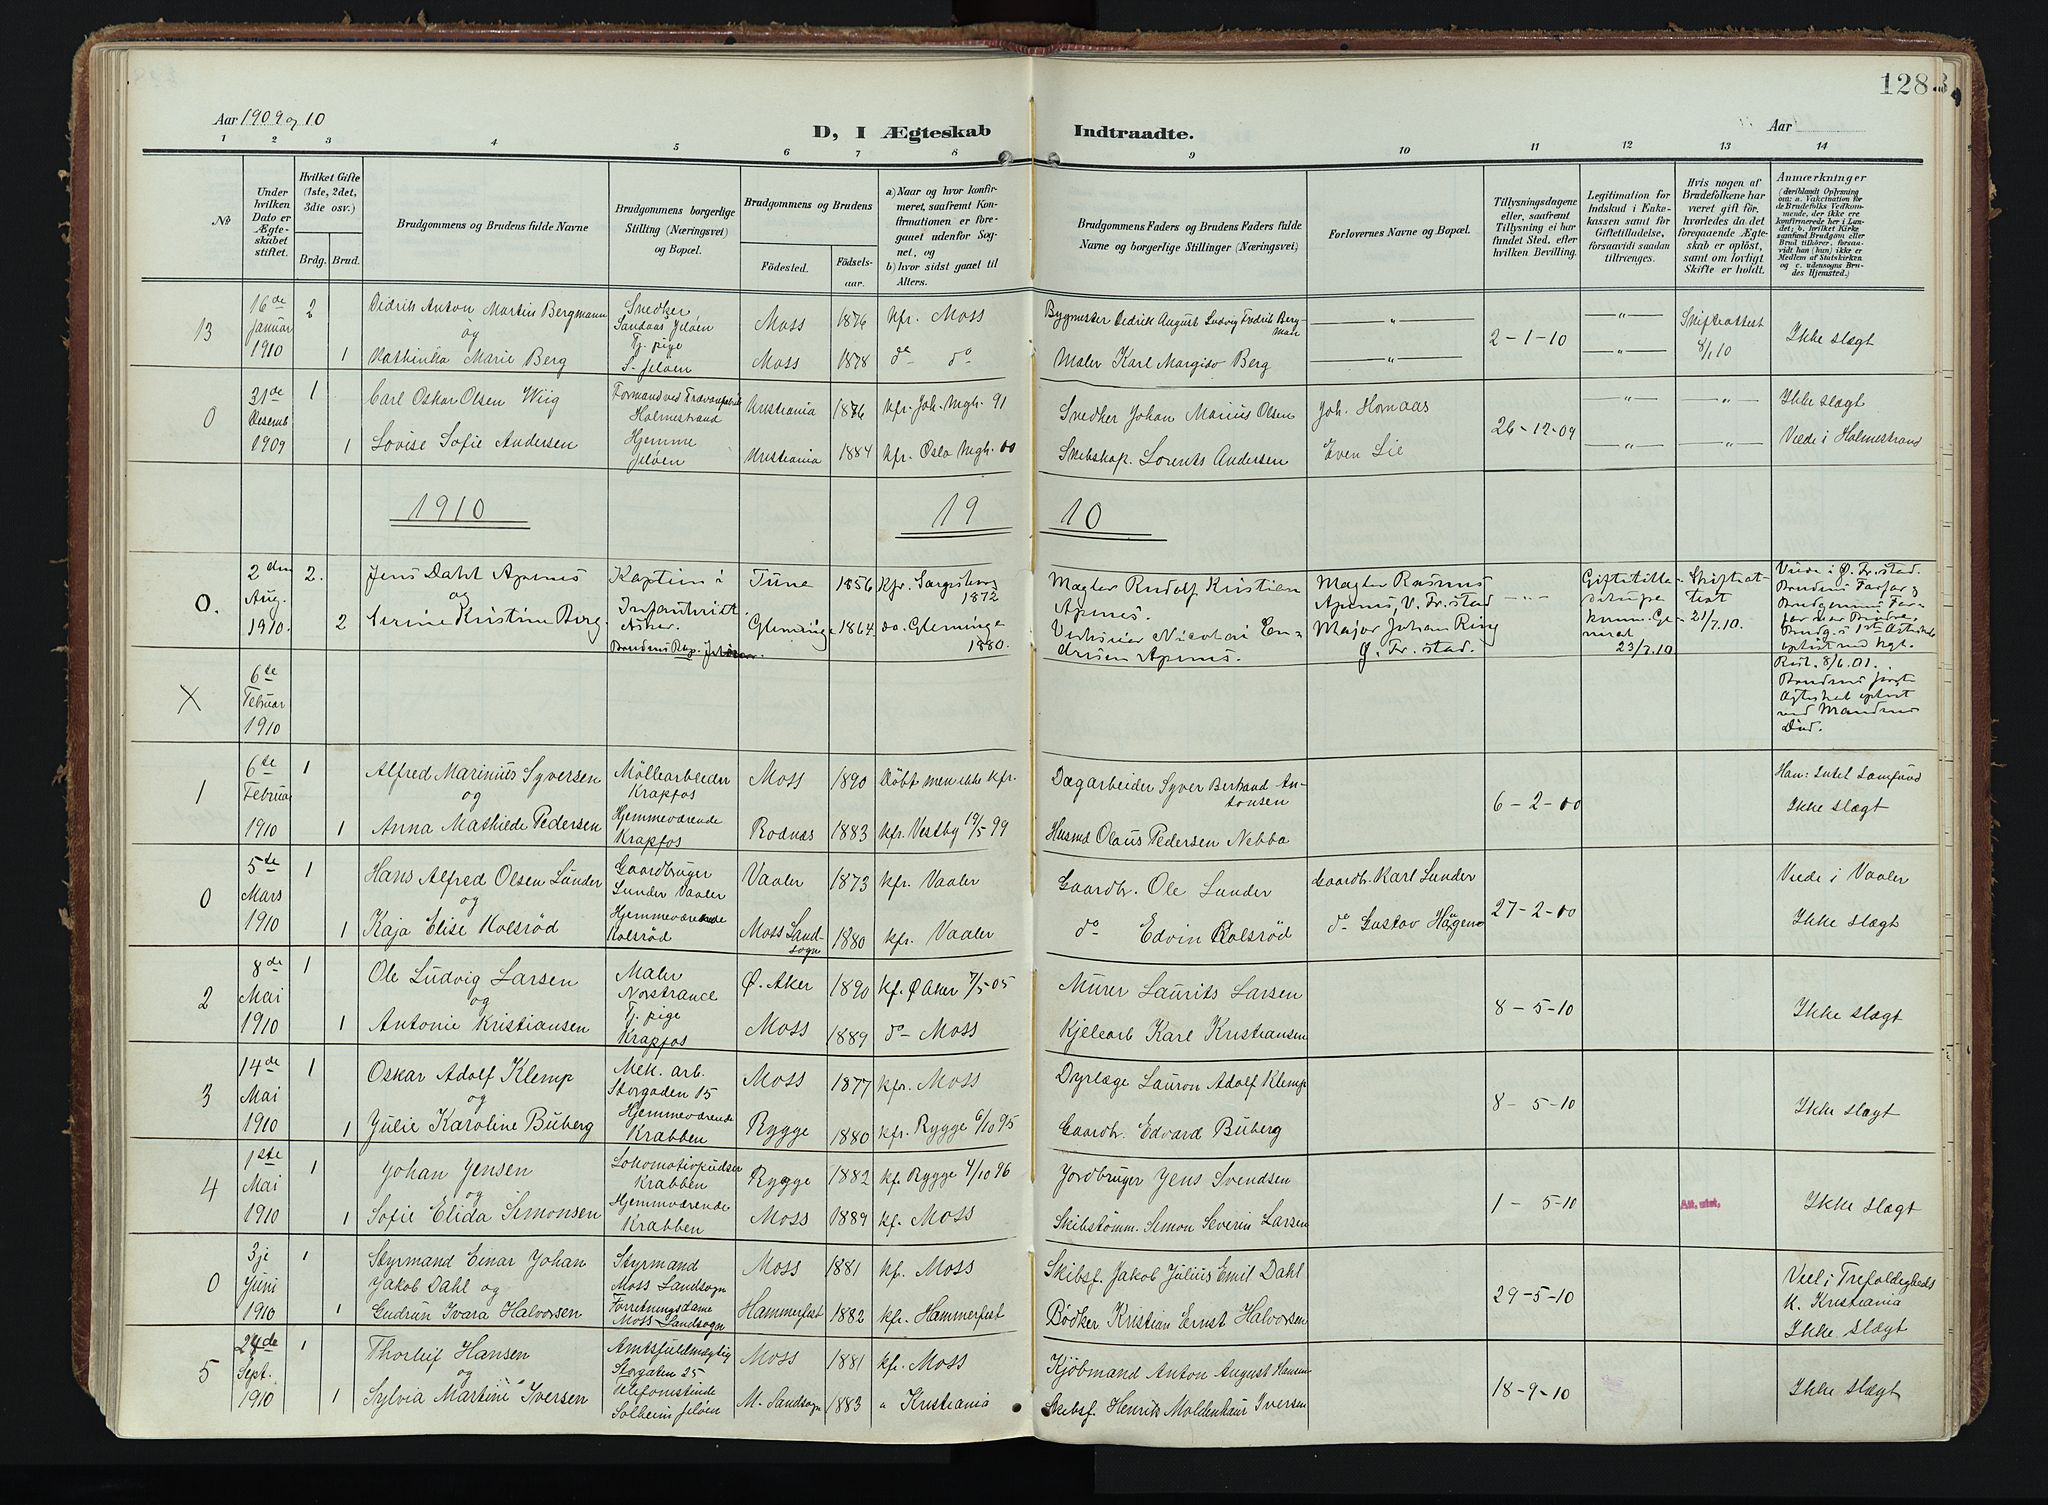 128
Aar 1909 og 10
D, I Ægteskab Indtraadte.
Aar
1 2 3 4 5 6 7 8 9 10 11 12 13 14
No
Under hvilken Dato er Ægteskabet stiftet.
Hvilket Gifte (1ste, 2det, 3die osv.)
Brdg. Brud.
Brudgommens og Brudens fulde Navne
Brudgommens borgerlige Stilling (Næringsvei) og Bopæl.
Brudgommens og Brudens
Födested. Födsels-aar.
a) Naar og hvor konfirmeret, saafremt Konfirmationen er foregaaet udenfor Sognet, og
b) hvor sidst gaaet til Alters.
Brudgommens Faders og Brudens Faders fulde Navne og borgerlige Stillinger (Næringsvei)
Forlovernes Navne og Bopæl.
Tillysningsdagene eller, saafremt Tillysning ei har fundet Sted, efter hvilken Bevilling.
Legitimation for Indskud i Enkekassen samt for Giftetilladelse, forsaavidt saadan tiltrænges.
Hvis nogen af Brudefolkene har været gift för, hvorledes da det foregaaende Ægteskab er oplöst, samt om lovligt Skifte er holdt.
Anmærkninger
(deriblandt Oplysning om: a. Vakcination for de Brudefolks Vedkommende, der ikke ere konfirmerede her i Landet; b. hvilket Kirkesamfund Brudgom eller Brud tilhörer, forsaavidt han (hun) ikke er Medlem af Statskirken og c. udensogns Brudes Hjemsted.)
13 16de Januar 1910 2 Didrik Anton Martin Bergmann Snedker Sandaas Jeløen Moss 1876 kfr. Moss Bygmester Didrik August Ludvig Fredrik Bergman — " — — " — Skifteattest 8/1 10
og 2-1-10 Ikke slægt
1 Kathinka Marie Berg Tj. pige S. Jeløen Moss 1878 do do Maler Karl Margido Berg — " — — " —
0 31de Desemb 1909 1 Carl Oskar Olsen Wiig Formand ved Holmestrand Kristiania 1876 kfr. Joh. Mgh. 91 Snedker Johan Marius Olsen Joh. Hornaas — " — — " — Ikke slægt
26-12-09
1 Lovise Sofie Andersen Hjemme Jeløen Kristiania 1884 kfr. Oslo Mgh. 00 Skibskap. Lorents Andersen Even Lie — " — — " — Viede i Holmestrand
1910 19 10
0. 2den Aug. 1910. 2. Jens Dahl Apenes Kaptein i Infanteriet Asker. Tune 1856 kfr. Sarpsborg 1872 Magler Rudolf Kristian Apenes. Magler Rasmus Apenes, V. Fr.stad — " — Skifteattest 21/7.10. Viede i Ø. Fr.stad.
og
2 Sirine Kristine Borg. Brudens Bop. Jeløen. Glemminge 1864 do. Glemminge 1880. Nicolai Apenes. Major Johan Ring Ø. Fr. stad. 23/7.10
Brudens Farfar og Brudgommens Farfar var Brødre.
Brudg.s 1ste Ægteskab opløst ved kgl.
Res. 8/6.01.
Brudens første Ægteskab opløst ved Mandens Død.
X 6te Februar 1910
1 6te Februar 1910 1 Alfred Marinius Syversen Møllearbeider Krapfos Moss 1890 Døbt men ikke kfr. Dagarbeider Syver Bertrand Antonsen Han: Intet Samfund
og 6-2-00 Ikke slægt
1 Anna Mathilde Pedersen Hjemmeværende Krapfos Rodnæs 1883 kfr. Vestby 19/5 99 Husmd Olaus Pedersen Nebba
0 5te Mars 1910 1 Hans Alfred Olsen Sunder Gaardbruger Sunder Vaaler Vaaler 1873 kfr. Vaaler Gaardbr. Ole Sunder Gaardb. Karl Sunder Viede i Vaaler
og 27-2-00
1 Kaja Elise Kolsrød Hjemmeværende Kolsrød Moss Landsogn 1880 kfr. Vaaler do Edvin Kolsrød do Gustav Haugen Ikke slægt
2 8de Mai 1910 1 Ole Ludvig Larsen Maler Norstrand Ø. Aker 1890 kf. Ø Aker 7/5-05 Murer Laurits Larsen
og 8-5-10 Ikke slægt
1 Antonie Kristiansen Tj. pige Krapfos Moss 1889 do Moss Kjelearb Karl Kristiansen
3 14de Mai 1910 1 Oskar Adolf Klemp Mek. arb. Storgaden 15 Moss 1877 kfr. Moss Dyrlæge Lauron Adolf Klemp
og 8-5-10 Ikke slægt
1 Julie Karoline Buberg Hjemmeværende Krabben Rygge 1880 kfr. Rygge 6/10 95 Gaardbr. Edvard Buberg
4 1ste Mai 1910 1 Johan Jensen Lokomotivpudser Krabben Rygge 1882 kf. Rygge 4/10 96 Jordbruger Jens Svendsen
og 1-5-10 Att. utst. Ikke slægt
1 Sofie Elida Simonsen Hjemmværende Krabben Moss 1889 kf. Moss Skibstømm. Simon Severin Larsen
0 3je Juni 1910 1 Styrmand Einar Johan Jakob Dahl og Styrmand Moss Landsogn Moss 1881 kf. Moss Skibsf. Jakob Julius Emil Dahl 29-5-10 Viet i Trefoldigheds K. Kristiania
1 Gudrun Ivara Halvorsen Forretningsdame Moss Landsogn Hammerfest 1882 kfr. Hammerfest Bødker Kristian Ernst Halvorsen Ikke slægt
5 24de Sept. 1910 1 Thorleif Hansen Amtsfuldmægtig Storgaten 25 Moss 1881 kfr. Moss Kjøbmand Anton August Hansen
og 18-9-10 Ikke slægt
1 Sylvia Martine Iversen Telefonistinde Solheim Jeløen M. Landsogn 1883 " Kristiania Skibsf. Henrik Moldenhaur Iversen